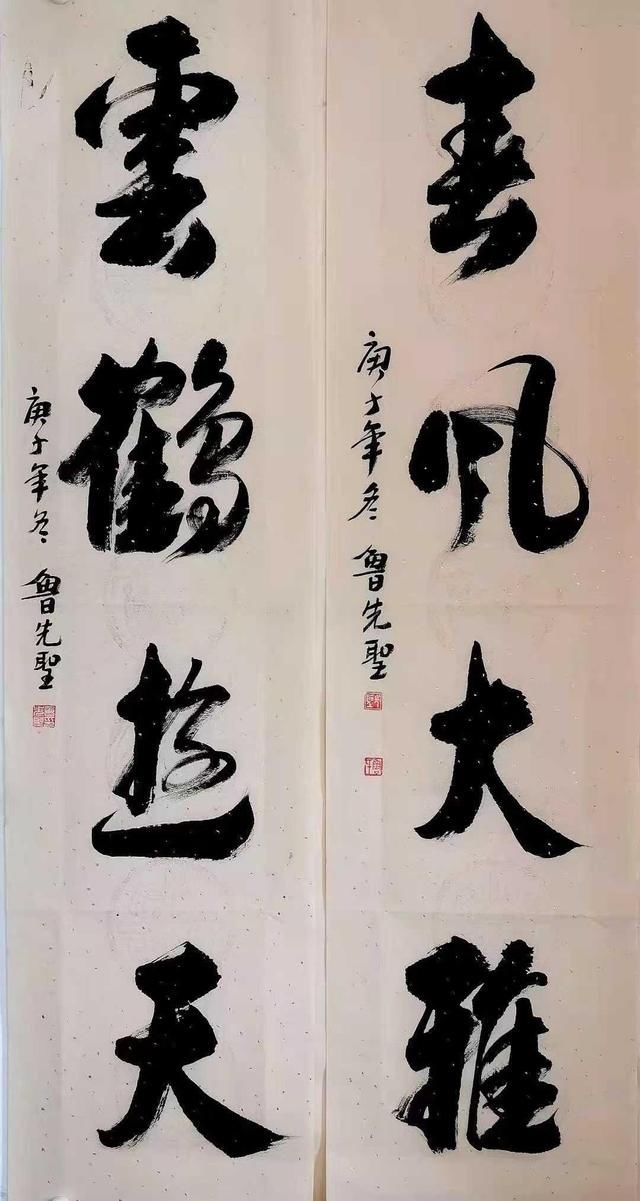 春風大雅
庚子年冬 魯先聖
雲鶴遊天
庚子年冬 魯先聖